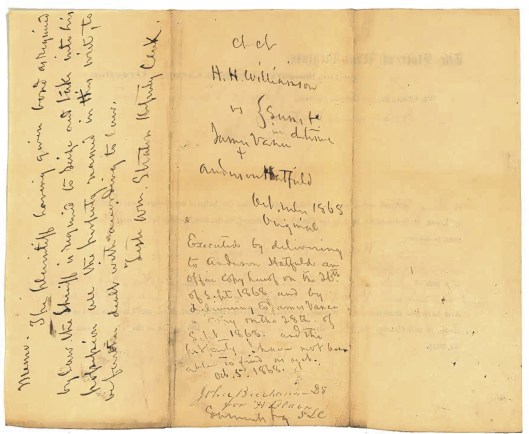 Memo. The plaintiff having given bond as required
by law the Sheriff is required to seize and take into his
possession all the property named in this writ, to
be further dealt with according to law.
Test Wm. Straton Deputy Clerk.
H. H. Williamson
vs } Sums in detinue
James Vance
+
Anderson Hatfield
Oct rules 1868
Original
Executed by delivering
to Anderson Hatfield an
office copy hereof on the 26th
of Sept. 1868 and by
delivering to James Vance
a copy on the 28th of
Sept 1868. and the
property I have not been
able to find as yet.
Oct. 5. 1868.
John Buchanan DS
for H